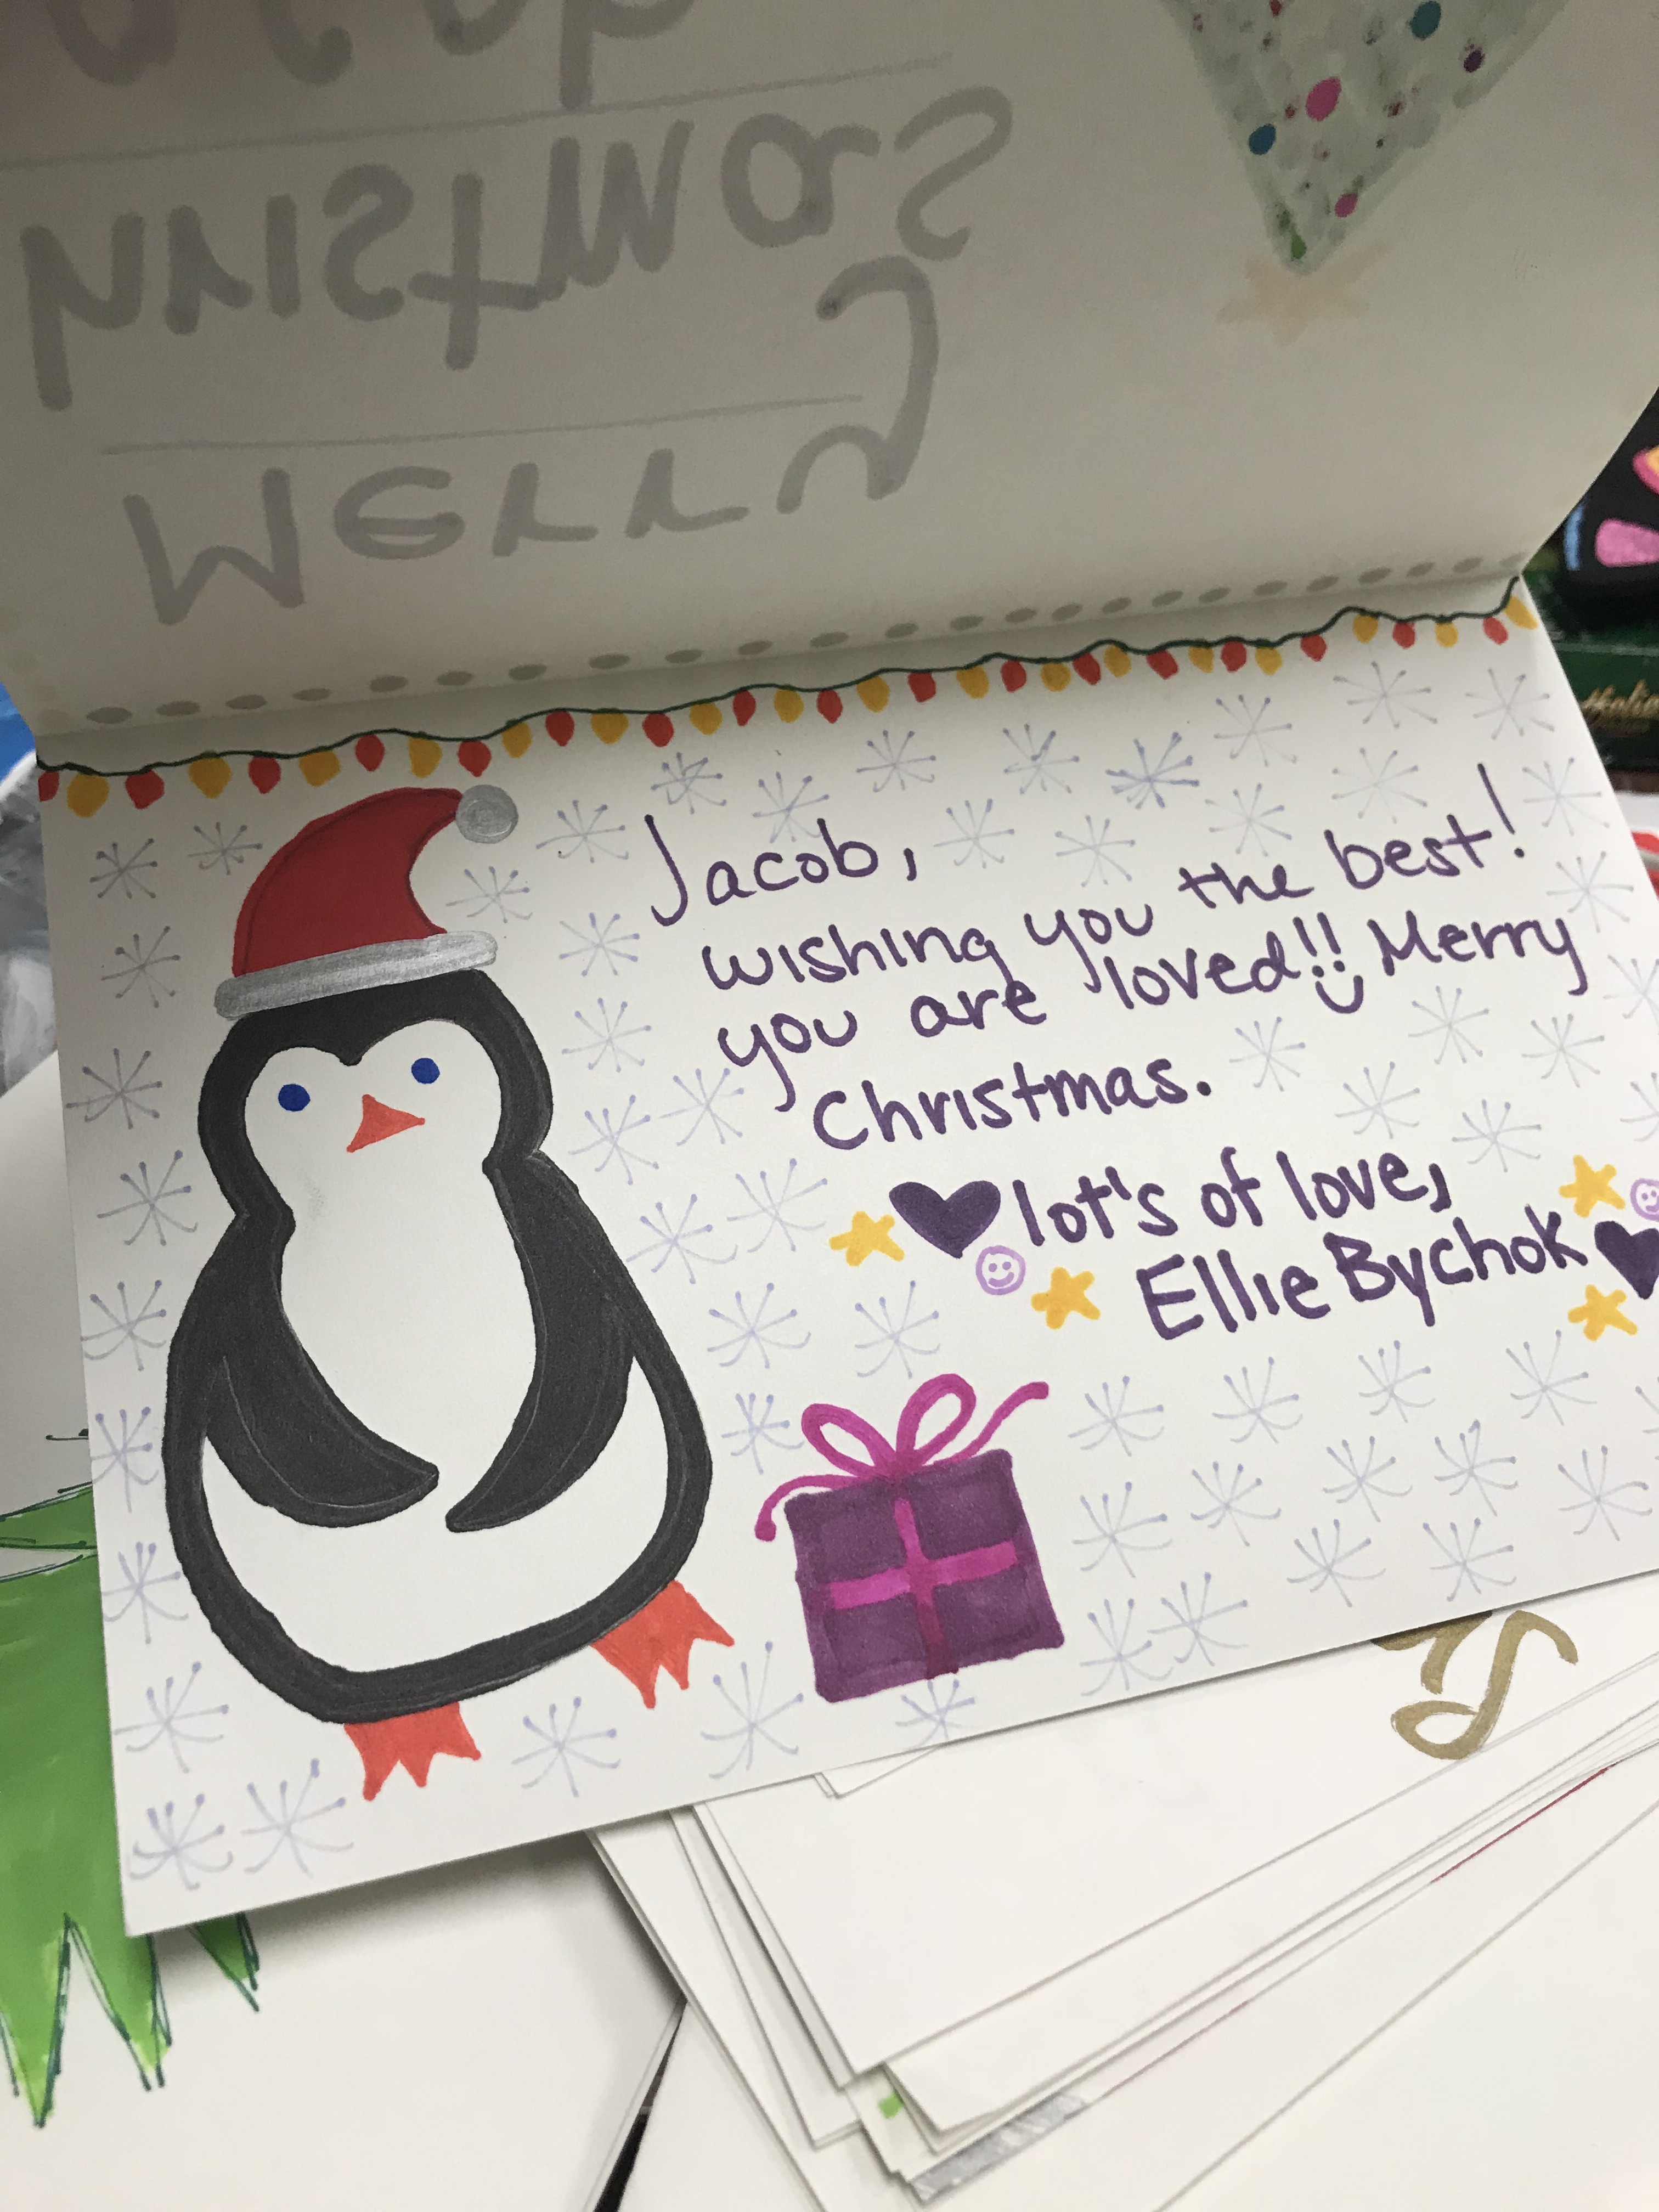 Merry
Christmas
Jacob,
wishing you the best!
you are loved!! Merry
Christmas.
lot's of love,
Ellie Bychok